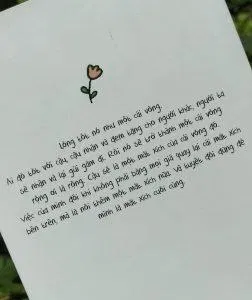 Lòng tốt nó như một cái vòng.
Ai đó tốt với cậu, cậu nhận và đem tặng cho người khác, người ta
sẽ nhận và lại gửi gắm đi. Rồi nó sẽ trở thành một cái vòng
rộng ơi là rộng. Cậu sẽ là một mắt xích của cái vòng đó.
Việc của mình đôi khi không phải bằng mọi giá quay lại cái mắt xích
bên trên, mà là nối thêm một mắt xích nữa. Và tuyệt đối đừng để
mình là mắt xích cuối cùng.